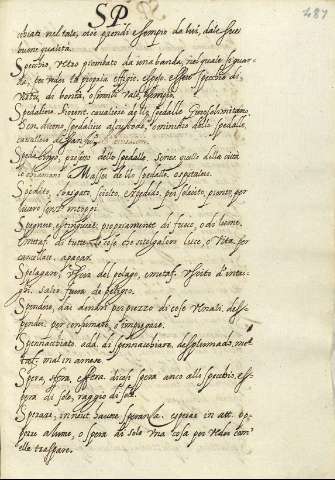 SP
487
chiati nel tale, cioè prendi essempio da lui, dalle sue
buone qualità.
Specchio, vetro piombato da una banda, nel quale si guar-
da, per veder la propria effigie. essere specchio di
virtù, di bontà, o simili vale, essempio.
Spedaliere cavaliere dello spedale Gerosolimitano
dello spedale,
cavaliere
prefetto dello spedale. Siena quello della città
lo chiamano Massai dello spedale, ospitalieri.
Spedito, sciolto, espedito, per soluto, pronto, per
sicuro senza intoppi.
Spegnere estinguere, propriamente di fuoco, o di lume.
metaf. di tutte le cose che ritengano luce, o vita, per
cancellare, appagar.
Spelagare, uscir del pelago, metaf. uscito d'intri-
ghi. salvo fuora de pelago.
Spendere, dar denari per prezzo di cose venali, dis-
pender, per consumare, o impiegare.
Spennacchiato, add. di spennacchiare, desplumado, me-
taf. mal in arnese.
Spera, sfera, essera. dicesi spera anco allo specchio. es-
pera di sole, raggio di sole.
Sperare, in neut. haver speranza. esperar in att. op-
porre a lume, o spera di sole una cosa per veder com'
ella traspare.